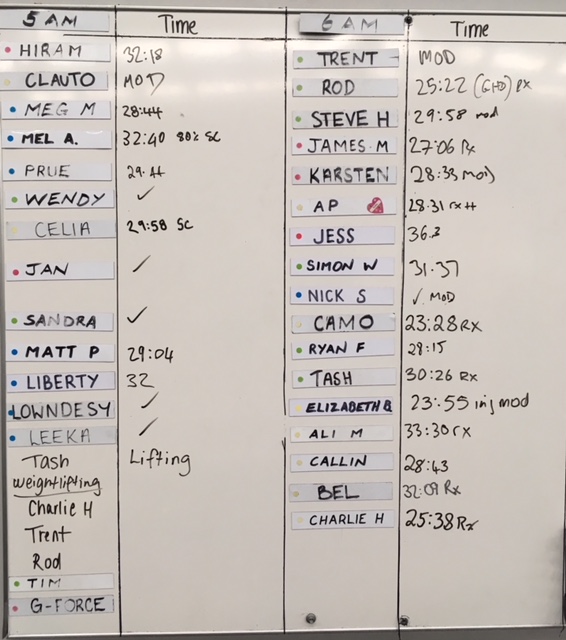 5 AM Time
HIRAM 32:18
CLAUTO MOD
MEG M 28:44
MEL A. 32:40 80% SC
PRUE
WENDY ✓
CELIA 29:58 SC
JAN ✓
SANDRA ✓
MATT P 29:04
LIBERTY 32
LOWNDESY ✓
LEEKA ✓
Tash Lifting
weightlifting
Charlie H
Trent
Rod
TIM
G-FORCE
6 AM Time
TRENT MOD
ROD 25:22 (GHD) RX
STEVE H 29:58 mod
JAMES M 27:06 Rx
KARSTEN 28:33 mod
AP 28:31 rx H
JESS 36.3
SIMON W 31.37
NICK S ✓ MOD
CAMO 23:28 RX
RYAN F 28:15
TASH 30:26 Rx
ELIZABETH B 23:55 inj mod
ALI M 33:30 rx
CALLIN 28:43
BEL 32:09 Rx
CHARLIE H 25:38 Rx